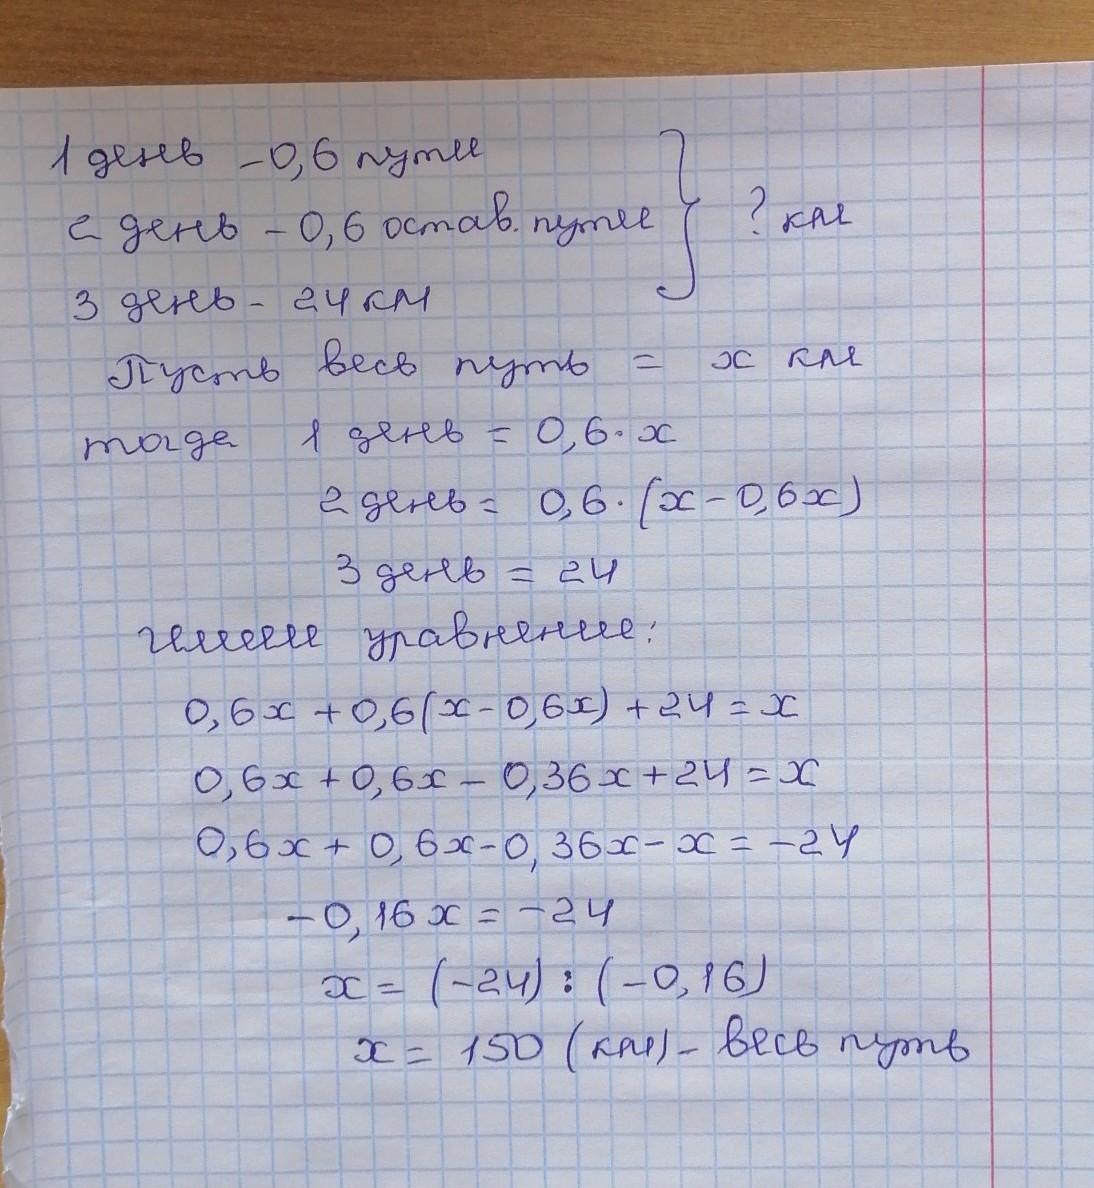 1 день - 0,6 пути
2 день - 0,6 остав. пути
? км
3 день - 24 км
Пусть весь путь = x км
тогда 1 день = 0,6 · x
2 день = 0,6 · (x - 0,6x)
3 день = 24
имеем уравнение:
0,6x + 0,6(x - 0,6x) + 24 = x
0,6x + 0,6x - 0,36x + 24 = x
0,6x + 0,6x - 0,36x - x = -24
-0,16x = -24
x = (-24) : (-0,16)
x = 150 (км) - весь путь